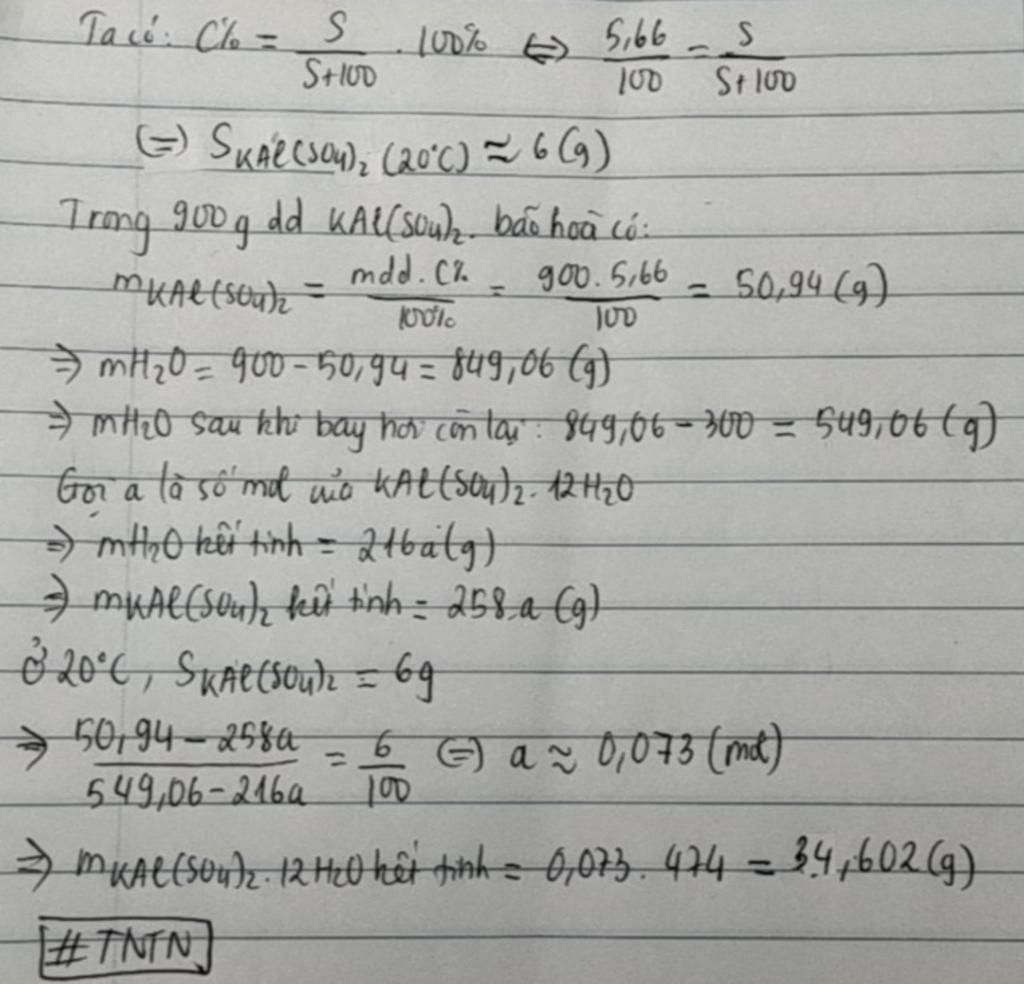 Ta có: C% = S/(S+100) . 100% ⇔ 5,66/100 = S/(S+100)
(=) S KAl(SO4)2 (20°C) ≈ 6 (g)
Trong 900g dd KAl(SO4)2. bão hoà có:
mKAl(SO4)2 = mdd. C%/100% = 900. 5,66/100 = 50,94 (g)
⇒ mH2O = 900 - 50,94 = 849,06 (g)
⇒ mH2O sau khi bay hơi còn lại: 849,06 - 300 = 549,06 (g)
Gọi a là số mol của KAl(SO4)2. 12H2O
⇒ mH2O kết tinh = 216a (g)
⇒ mKAl(SO4)2 kết tinh = 258.a (g)
Ở 20°C, S KAl(SO4)2 = 6g
⇒ (50,94 - 258a)/(549,06 - 216a) = 6/100 (=) a ≈ 0,073 (mol)
⇒ mKAl(SO4)2. 12H2O kết tinh = 0,073. 474 = 34,602 (g)
#TNTN